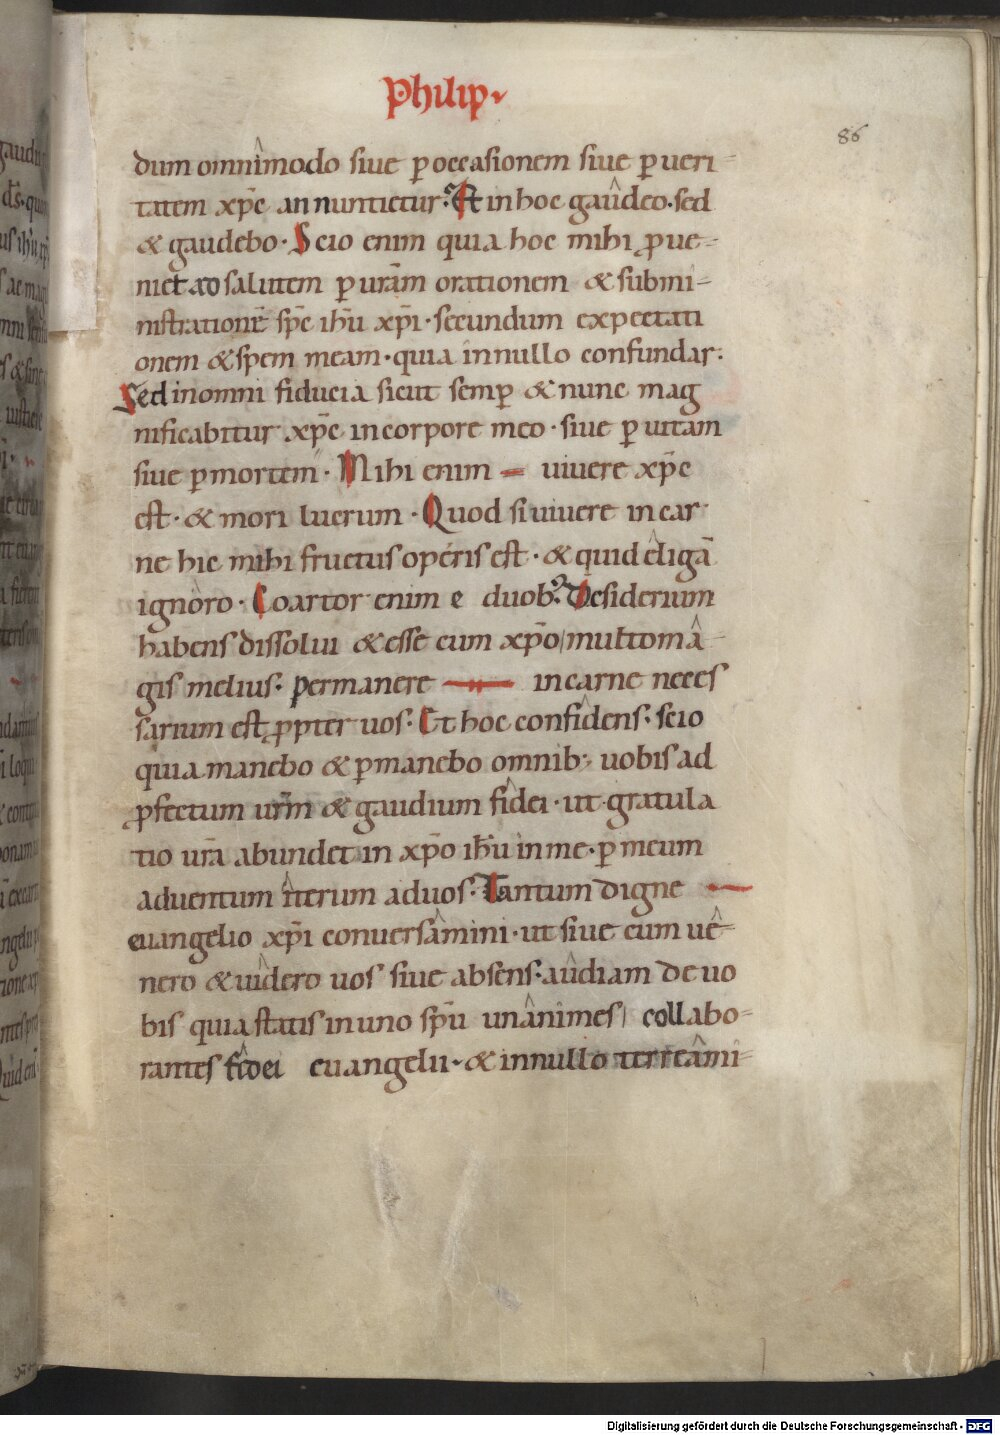 Philip.
86
dum omnimodo siue ꝑ occasionem siue ꝑ ueri-
tatem xp̄c annuntietur. Et in hoc gaudeo. sed
& gaudebo. Scio enim quia hoc mihi ꝓue-
niet ad salutem ꝑ urām orationem & submi-
nistrationē sp̄c ih̄u xp̄i. secundum expectati
onem & spem meam. quia in nullo confundar.
Sed in omni fiducia sicut semꝑ & nunc mag
nificabitur xp̄c in corpore meo. siue ꝑ uitam
siue ꝑ mortem. Mihi enim uiuere xp̄c
est. & mori lucrum. Quod si uiuere in car
ne hic mihi fructus operis est. & quid eligā
ignoro. Coartor enim e duob; Desiderium
habens dissolui & esse cum xp̄o multo ma-
gis melius. permanere in carne neces
sarium est ꝓpter uos. Et hoc confidens. scio
quia manebo & ꝑmanebo omnib; uobis ad
ꝓfectum ur̄m & gaudium fidei. ut gratula
tio ur̄a abundet in xp̄o ih̄u in me. ꝑ meum
aduentum iterum ad uos. Tantum digne
euangelio xp̄i conuersamini. ut siue cum ue-
nero & uidero uos siue absens. audiam de uo
bis quia statis in uno sp̄u unanimes collabo-
rantes fidei euangelii. & in nullo terreami-
Digitalisierung gefördert durch die Deutsche Forschungsgemeinschaft - DFG